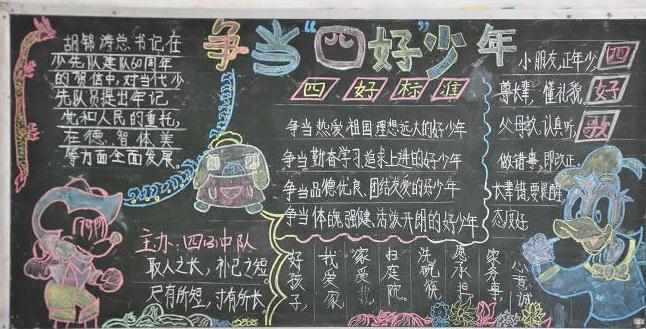 争当"四好"少年
胡锦涛总书记在
少先队建队60周年
的贺信中,对当代少
先队员提出牢记
党和人民的重托,
在德、智、体、美
等方面全面发展。
四好标准
争当热爱祖国、理想远大的好少年
争当勤奋学习、追求上进的好少年
争当品德优良、团结友爱的好少年
争当体魄强健、活泼开朗的好少年
四好歌
小朋友,正年少,
尊长辈,懂礼貌,
父母教,认真听,
做错事,即改正。
长辈错,要提醒
态度
主办:四(3)中队
取人之长,补己之短
尺有所短,寸有所长
好孩子,
我爱家
家爱我
扫庭院
洗碗筷
愿承担
家务事
心意诚